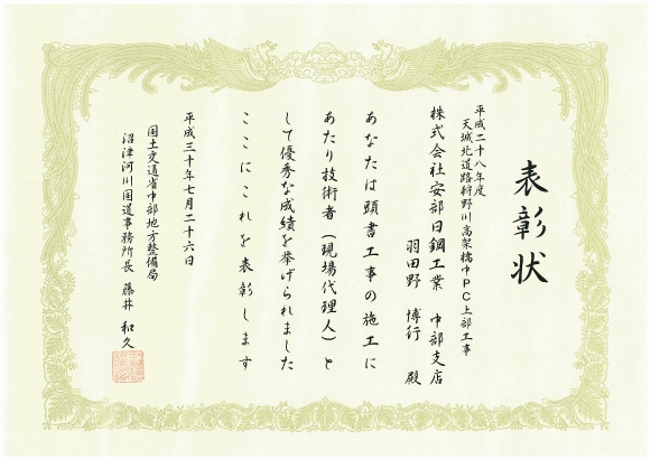 表彰状
平成二十八年度
天城北道路狩野川高架橋中PC上部工事
株式会社安部日鋼工業 中部支店
羽田野 博行 殿
あなたは頭書工事の施工に
あたり技術者（現場代理人）と
して優秀な成績を挙げられました
ここにこれを表彰します
平成三十年七月二十六日
国土交通省中部地方整備局
沼津河川国道事務所長 藤井 和久